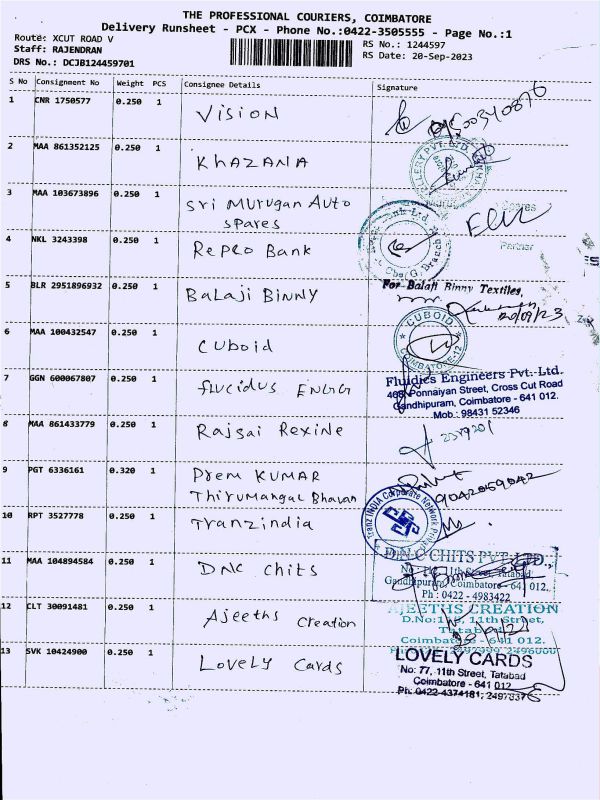 THE PROFESSIONAL COURIERS, COIMBATORE
Delivery Runsheet - PCX - Phone No.:0422-3505555 - Page No.:1
Route: XCUT ROAD V
RS No.: 1244597
Staff: RAJENDRAN
RS Date: 20-Sep-2023
DRS No.: DCJB124459701
S No Consignment No Weight PCS Consignee Details Signature
1 CNR 1750577 0.250 1 VISION
2 MAA 861352125 0.250 1 KHAZANA
3 MAA 103673896 0.250 1 Sri Murugan Auto
Spares
Partner
4 NKL 3243398 0.250 1 Repco Bank
5 BLR 2951896932 0.250 1 BALAJI BINNY
For Balaji Binny Textiles,
20/09/23
6 MAA 100432547 0.250 1 Cuboid
CUBOID
COIMBATORE-12
7 GGN 600067807 0.250 1
Fluidics Engineers Pvt. Ltd.
Ponnaiyan Street, Cross Cut Road
Gandhipuram, Coimbatore - 641 012.
Mob.: 98431 52346
8 MAA 861433779 0.250 1 Rajsai Rexine
9 PGT 6336161 0.320 1 Prem KUMAR
Thirumangal Bhavan
9042059042
10 RPT 3527778 0.250 1 Tranzindia
Tranz INDIA Corporate Network
11 MAA 104894584 0.250 1 DNC Chits
D.N.C CHITS PVT. LTD.,
11th Street, Tatabad,
Gandhipuram, Coimbatore - 641 012.
Ph : 0422 - 4983422
12 CLT 30091481 0.250 1 Ajeeths Creation
AJEETHS CREATION
11th Street,
Tatabad
Coimbatore - 641 012.
13 SVK 10424900 0.250 1 LOVELY CARDS
LOVELY CARDS
No: 77, 11th Street, Tatabad
Coimbatore - 641 012
Ph: 0422-4374181,